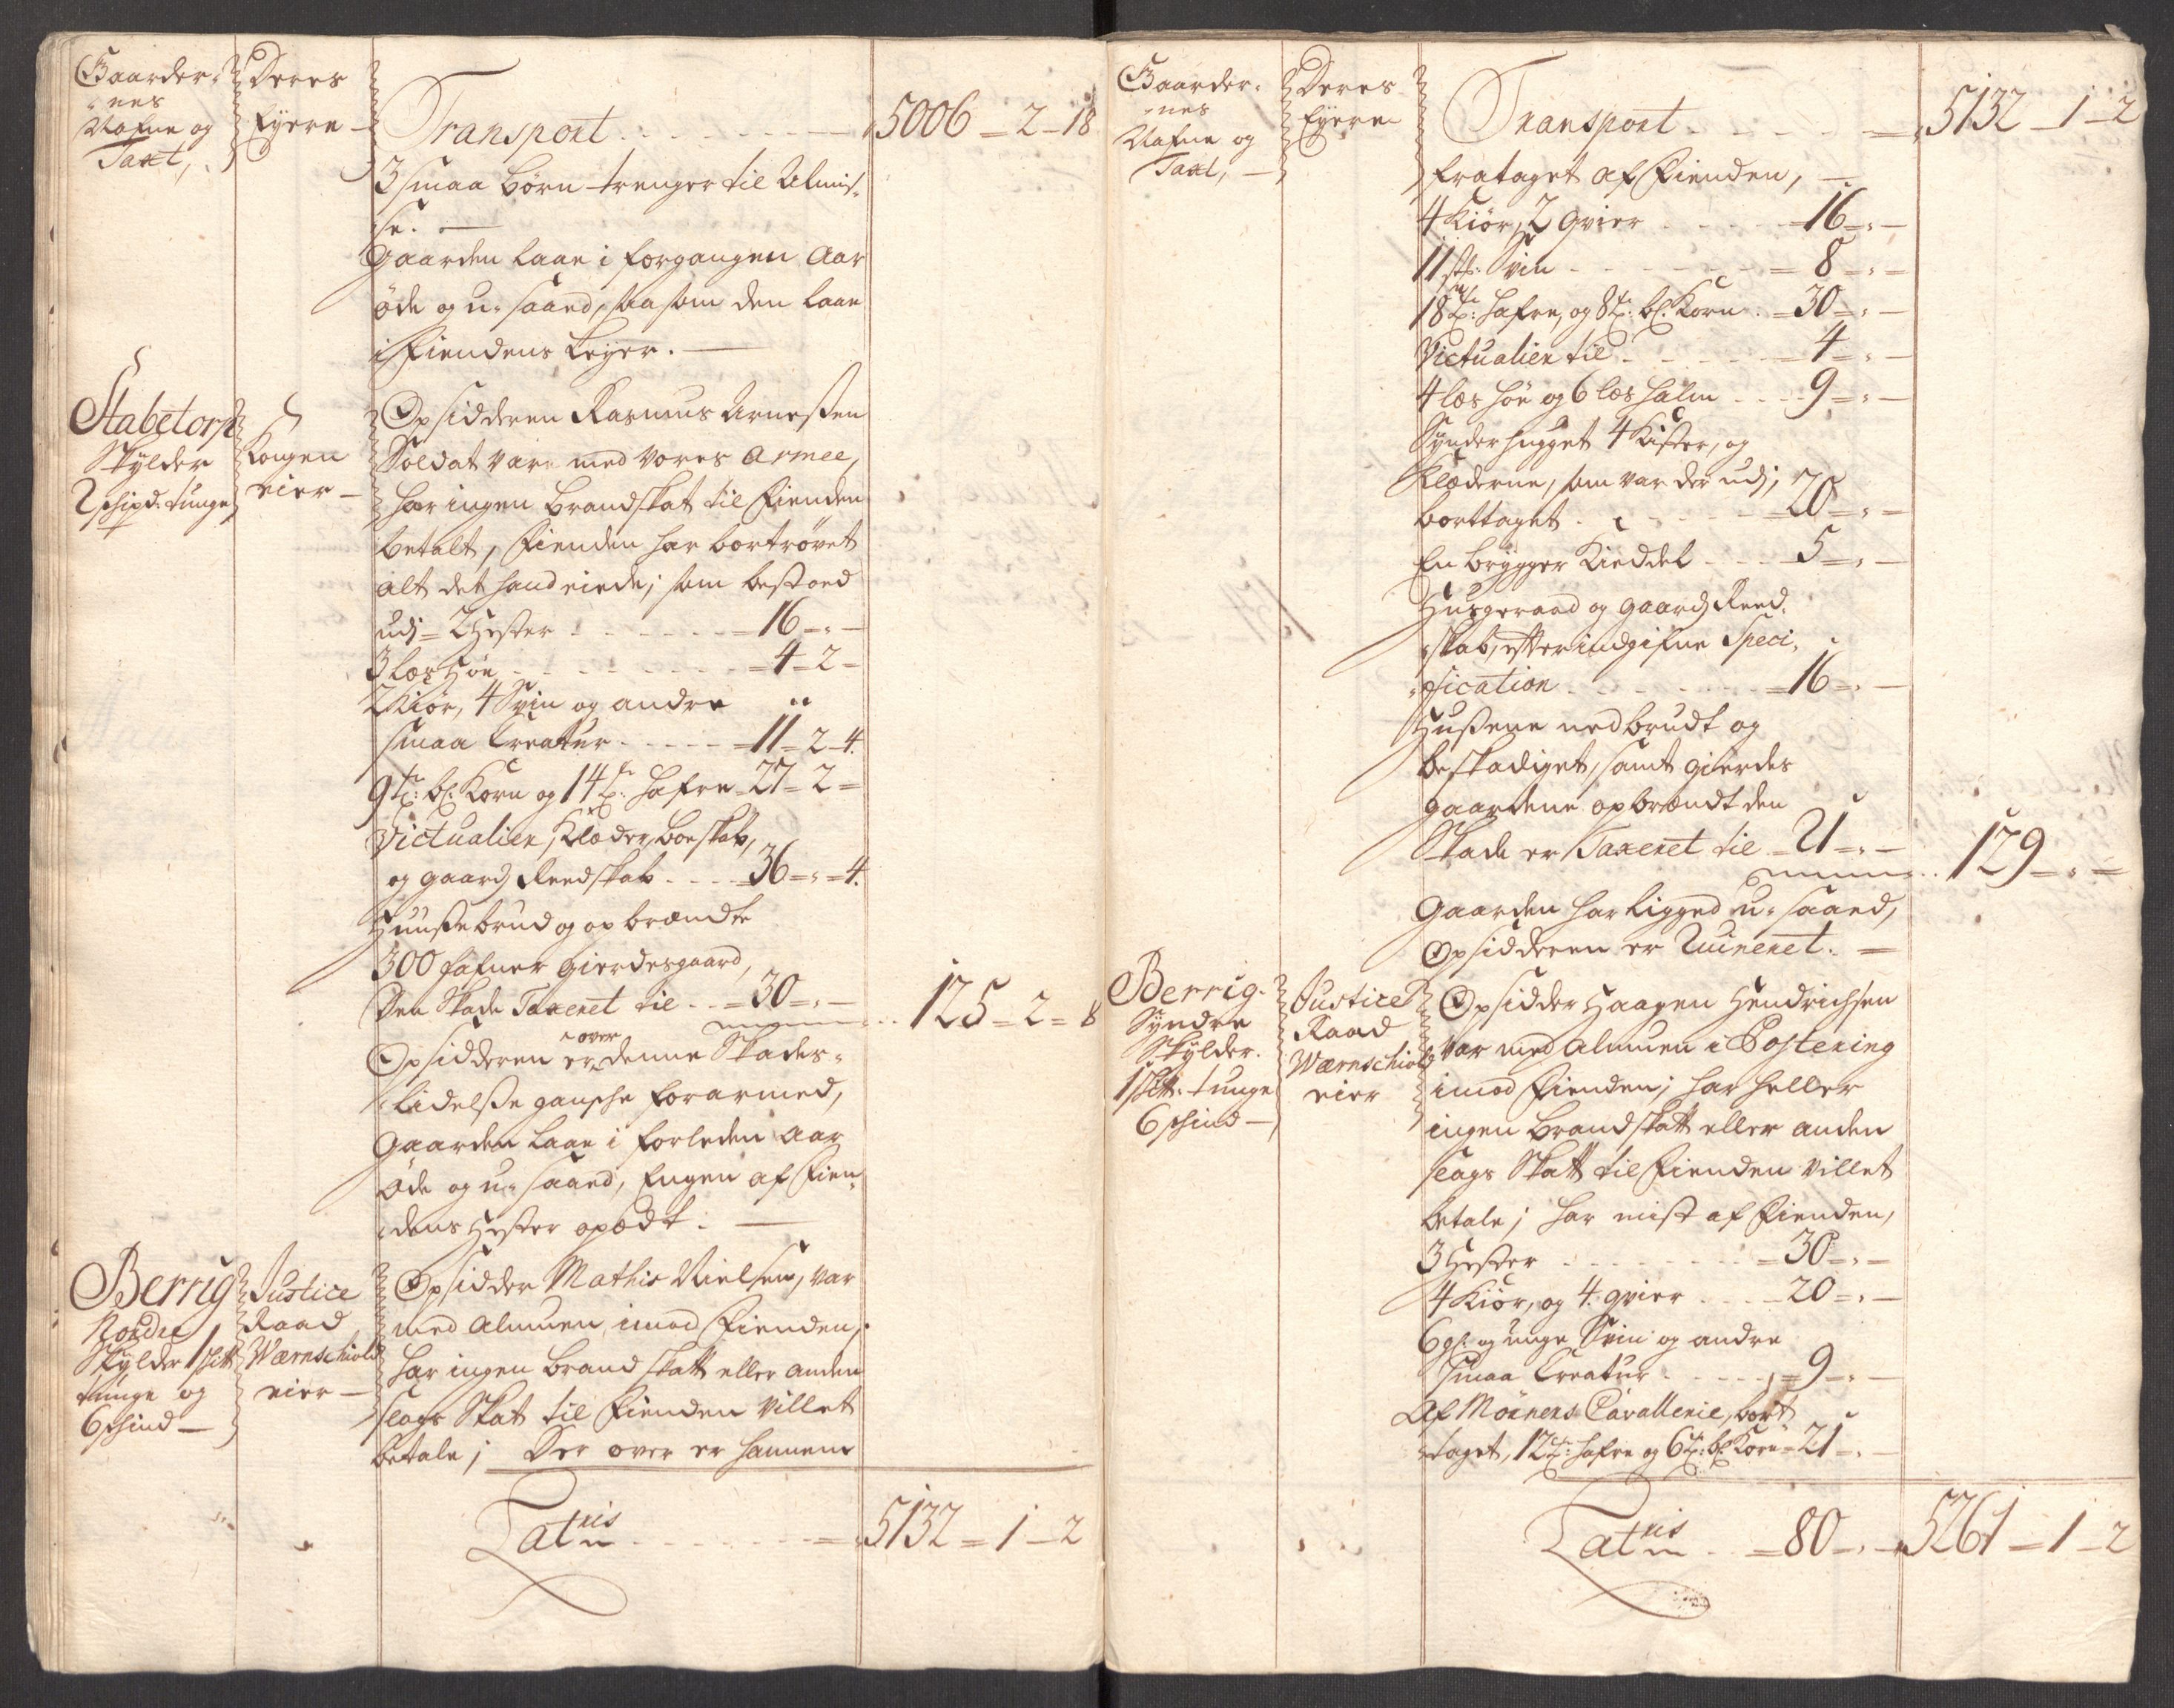 Gaarder-
nes
Nafne og
Taxt,
Deres
Eyere
Transport . . . 5006 - 2 - 18
3 smaa børn trenger til Almis-
se.
Gaarden laae i forgangen Aar
øde og u-saaed, saasom den laae
i Fiendens Leyer.
Stabetorp
Skylder
2 schipd: tunge
Kongen
eier
Opsidderen Rasmus Arnessen
Soldat var med vores Armee,
har ingen brandskat til Fienden
betalt, Fienden har bortrøvet
alt det hand eiede; som bestoed
udj 2 Hester . . . 16 - " -
3 læs Høe . . . 4 - 2 -
2 Kiør, 4 Svin og andre
smaa Creatur . . . 11 - 2 - 4.
9 t: bl: Korn og 14 t: Hafre 27 - 2 =
Victualier, Klæder, boeskab,
og gaards Reedskab . . . 36 = " = 4.
Huusebrud og opbrændte
300 fafner gierdesgaard,
Den Skade Taxeret til . . 30 = " - 125 = 2 = 8
Opsidderen er over denne Skades-
lidelsse gansche forarmed,
Gaarden laae i forleden Aar
øde og u-saaed, Engen af Fien-
dens Hester opædt.
Berrig
Nordre
Skylder 1 schtt
tunge og
6 schind
Justice
Raad
Wærnschiold
eier
Opsidder Mathis Nielsen, var
med Almuen imod Fienden,
har ingen brandskatt eller anden
slags Skat til Fienden villet
betale; Der over er hannem
Lateris . . . 5132 = 1 - 2
Gaarder-
nes
Nafne og
Taxt,
Deres
Eyere
Transport . . . 5132 - 1 - 2
frataget af Fienden,
4 Kiør, 2 qvier . . . 16 - " -
11 st: Svin . . . 8 - " -
18 t: Hafre, og 8 t: bl: Korn . 30 - " -
Victualier til . . . 4 - " -
4 læs høe og 6 læs halm . . . 9 - " -
Synderhugget 4 Kister, og
Klæderne, som var der udj,
borttaget . . . 20 - " -
En brygger Kieddel . . . 5 - " -
Husgeraad og gaards Reed-
skab, efter indgifne Speci-
fication . . . 16 - " -
Hussene nedbrudt og
beskadiget, samt gierdes
gaardene opbrændt den
Skade er Taxeret til 21 - " - 129 - " -
Gaarden har ligged u-saaed,
Opsidderen er Ruineret.
Berrig
Syndre
Skylder
1 schtt: tunge
6 schind
Justice
Raad
Wærnschiold
eier
Opsidder Haagen Hendrichsen
var med Almuen i Postering
imod Fienden; har heller
ingen brandskatt eller anden
slags Skatt til Fienden villet
betale; har mist af Fienden,
3 Hester . . . 30 - " -
4 Kiør, og 4 qvier . . . 20 - " -
6 gl: og unge Svin og andre
smaa Creatur . . . 9 - " -
Af Mörners Cavallerie, bort-
taget, 12 t: hafre og 6 t: bl: Korn 21 - " -
Lateris . . . 80 - " - 5261 - 1 - 2